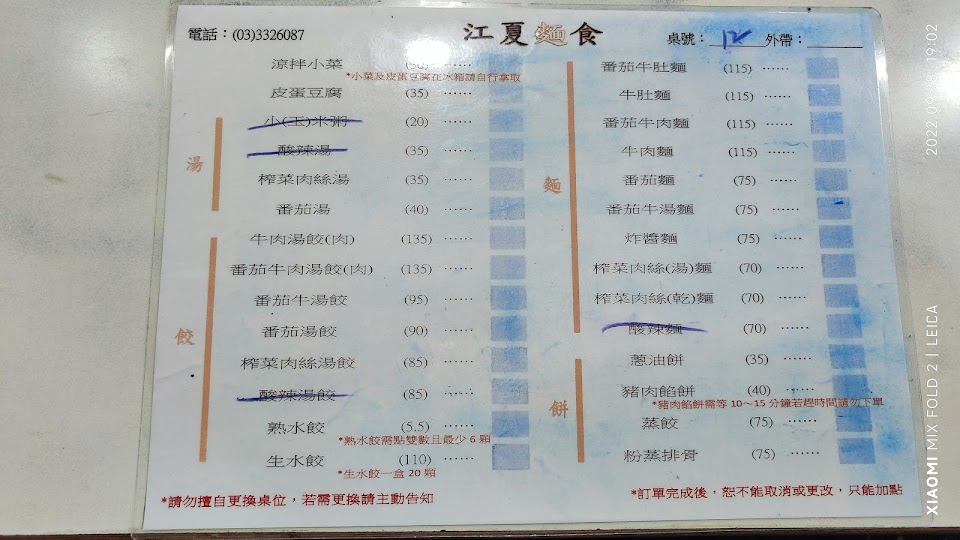 電話：(03)3326087
江夏麵食
桌號：12 外帶：
涼拌小菜 (30) ······
*小菜及皮蛋豆腐在冰箱請自行拿取
皮蛋豆腐 (35) ······
湯
小(玉)米粥 (20) ······
酸辣湯 (35) ······
榨菜肉絲湯 (35) ······
番茄湯 (40) ······
餃
牛肉湯餃(肉) (135) ······
番茄牛肉湯餃(肉) (135) ······
番茄牛湯餃 (95) ······
番茄湯餃 (90) ······
榨菜肉絲湯餃 (85) ······
酸辣湯餃 (85) ······
熟水餃 (5.5) ······
*熟水餃需點雙數且最少 6 顆
生水餃 (110) ······
*生水餃一盒 20 顆
*請勿擅自更換桌位，若需更換請主動告知
麵
番茄牛肚麵 (115) ······
牛肚麵 (115) ······
番茄牛肉麵 (115) ······
牛肉麵 (115) ······
番茄麵 (75) ······
番茄牛湯麵 (75) ······
炸醬麵 (75) ······
榨菜肉絲(湯)麵 (70) ······
榨菜肉絲(乾)麵 (70) ······
酸辣麵 (70) ······
餅
蔥油餅 (35) ······
豬肉餡餅 (40) ······
*豬肉餡餅需等 10～15 分鐘若趕時間請勿下單
蒸餃 (75) ······
粉蒸排骨 (75) ······
*訂單完成後，恕不能取消或更改，只能加點
XIAOMI MIX FOLD 2 | LEICA